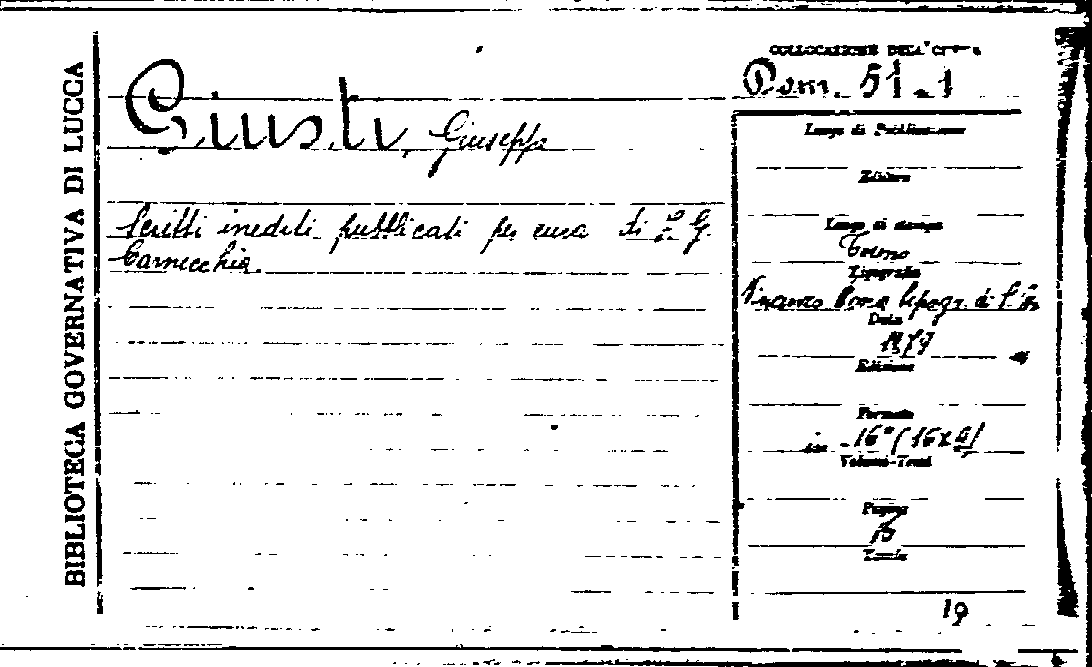 BIBLIOTECA GOVERNATIVA DI LUCCA
Giusti, Giuseppe
Scritti inediti pubblicati per cura di P. G.
Carnecchia.
COLLOCAZIONE DELL'OPERA
Pam. 51.1
Luogo di Pubblicazione
Editore
Luogo di stampa
Torino
Tipografia
Vincenzo Bona tipogr. di
Data
Edizione
Formato
in -16° (16x
Volumi-Tomi
Pagine
Tavole
19